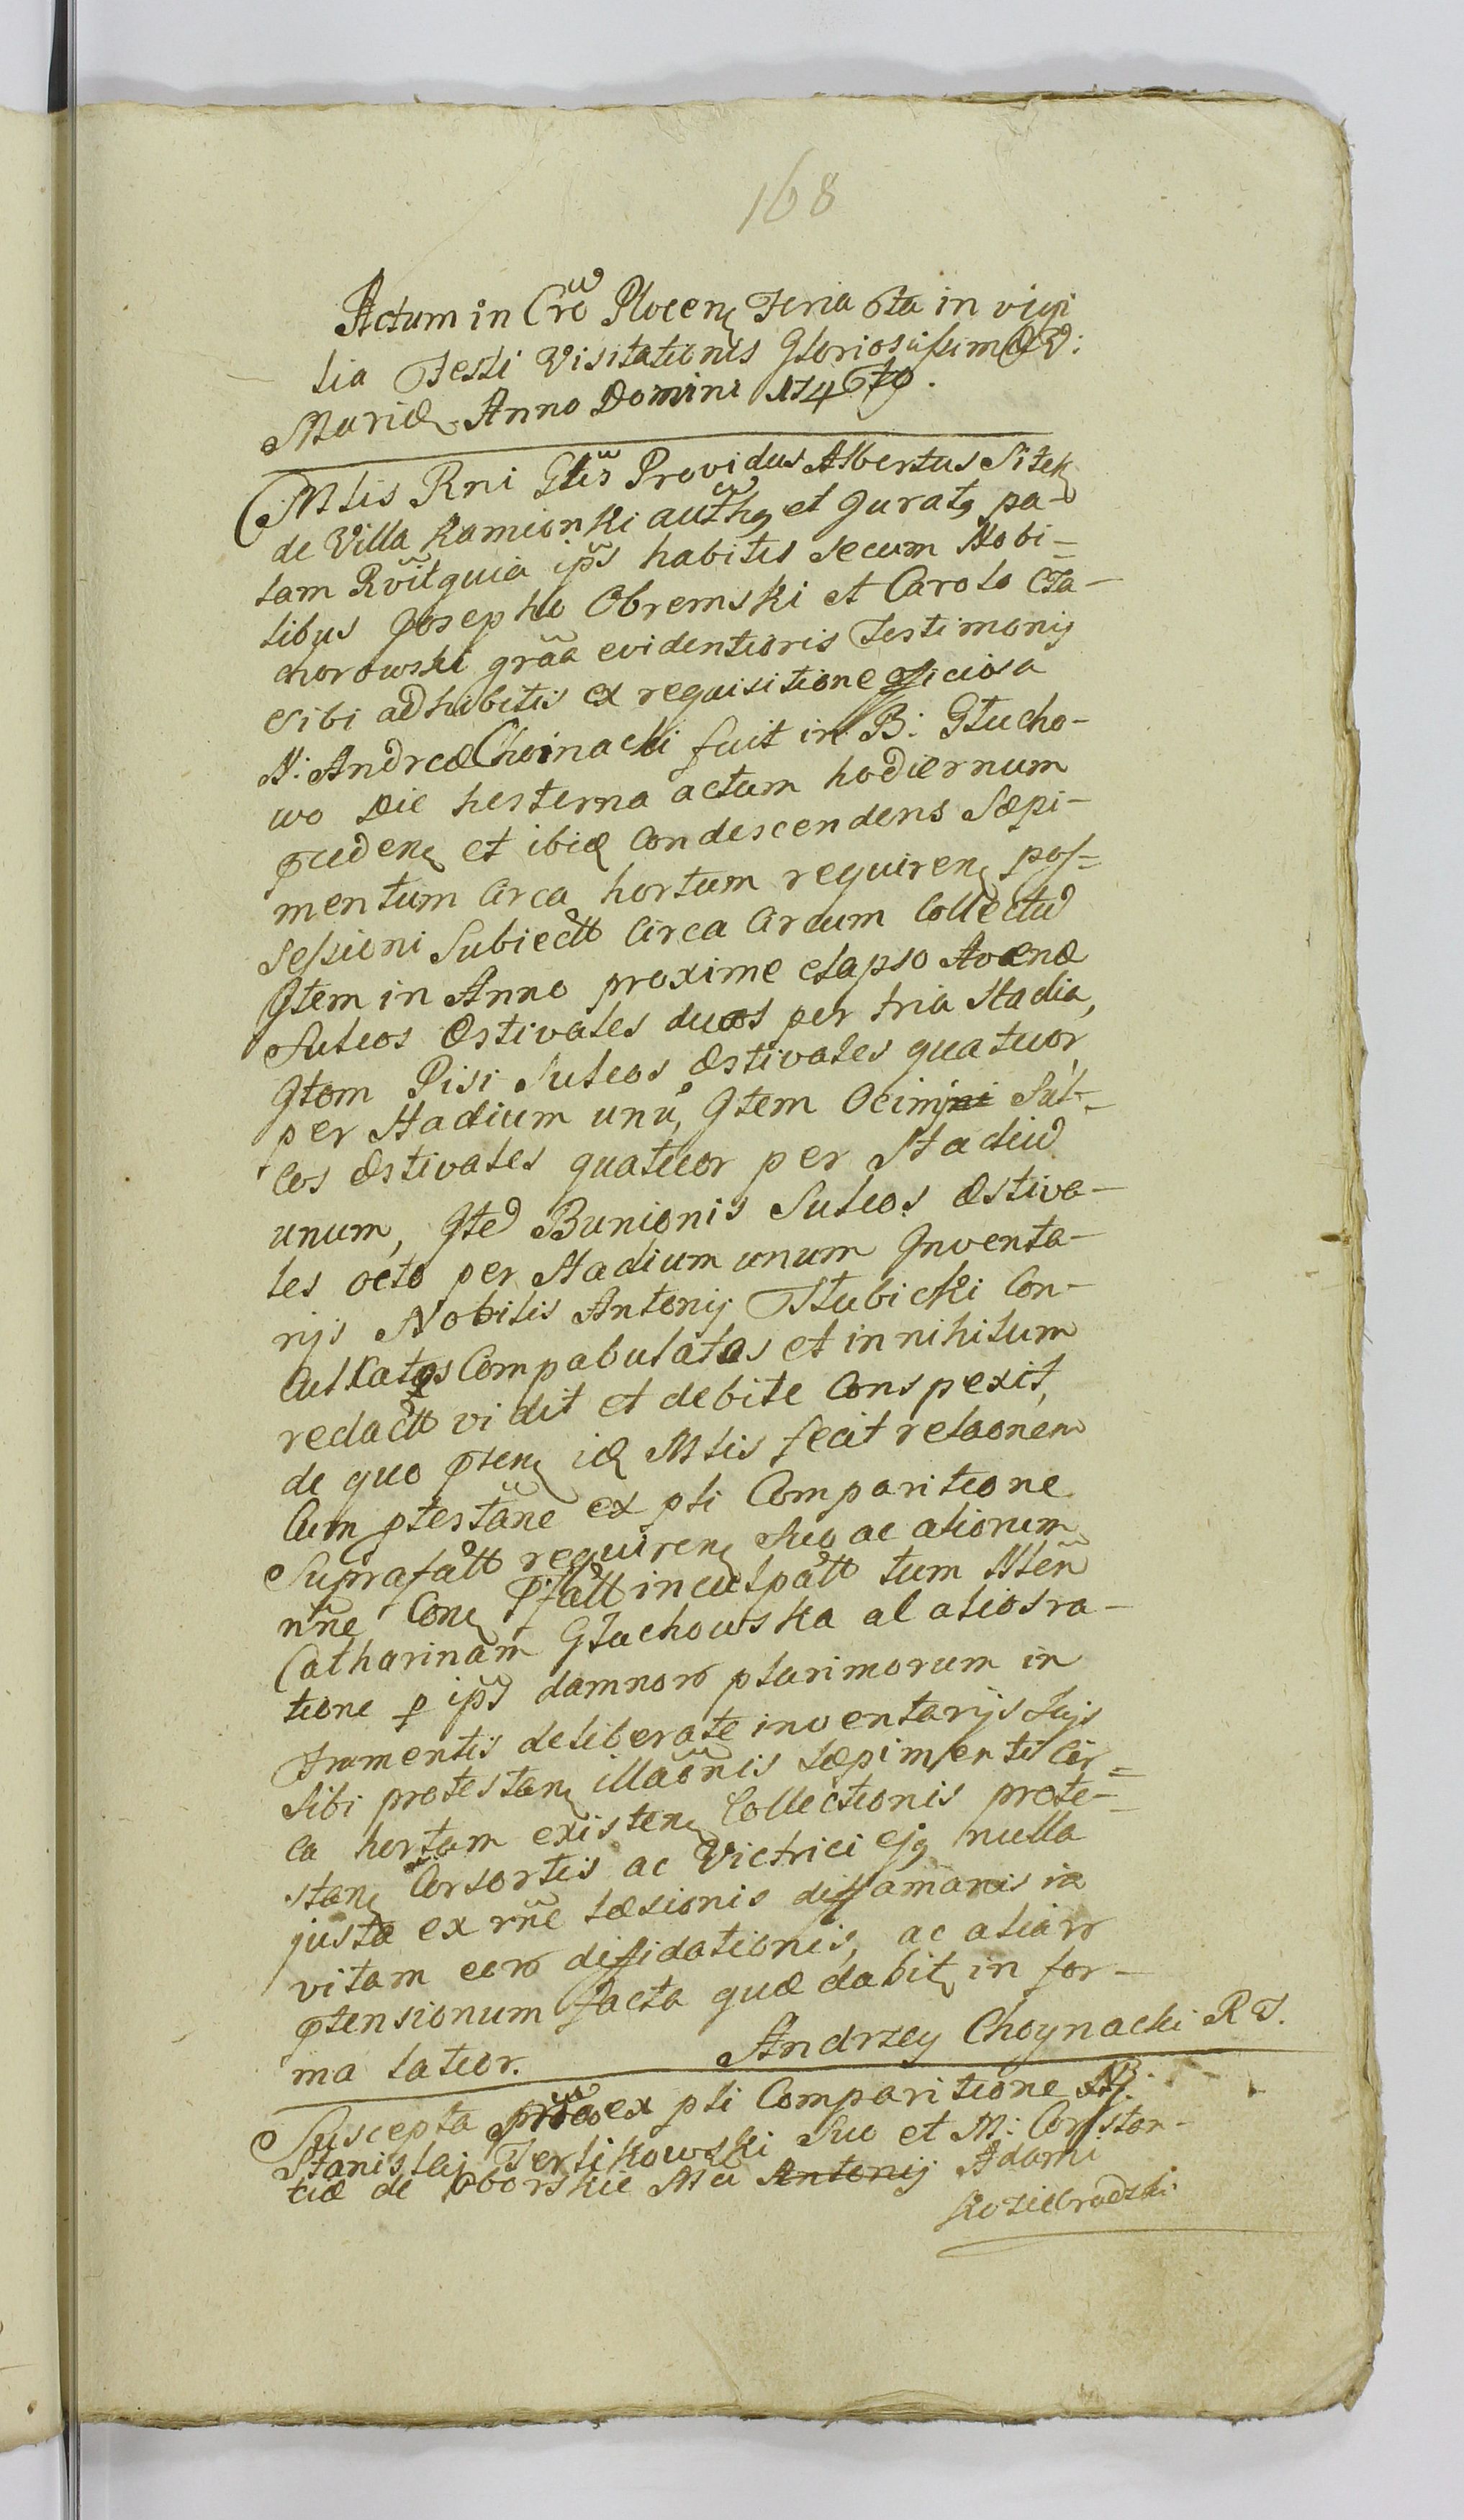 168
Actum in Cro Plocen Feria 6ta in vigi
lia Festi Visitationis Gloriosissimæ V:
Mariæ Anno Domini 174
Mlis Rni Glis Providus Albertus Sitek
de Villa Kamionki auth et Jurat pa-
lam Rvit quia ips habitis secum Nobi-
libus Josepho Obremski et Carolo Cza-
chorowski graa evidentioris Testimonij
sibi adhibitis ex requisitione officiosa
N: Andreæ Choinacki fuit in B: Głucho-
wo Die hesterna actum hodiernum
pceden et ibid Condescendens Sæpi-
mentum Circa hortum requiren pos-
sessioni Subiectt Circa Circum Collectu
Item in Anno proxime elapso Avenæ
Sulcos Æstivales duos per tria Stadia,
Item Pisi Sulcos Æstivales quatuor
per Stadium unu, Item Ocimi Sul-
cos Æstivales quatuor per Stadiu
unum, Ite Bunionis Sulcos Æstiva-
les octo per Stadium unum Inventa-
rijs Nobilis Antonij Słubicki Con-
culcatos Compabulatos et in nihilum
redactt vidit et debite Conspexit,
de quo pten id Mlis fecit relaonem
Cum ptestane ex pli Comparitione
Suprafatt requiren Suo ac aliorum
nne Con Pfatt inculpatt tum Mlen
Catharinam Głuchowska al alios ra-
tione p ips damnor plurimorum in
frumentis deliberate inventarijs Suis
Sibi protestan illaonis sæpimenti Cir-
ca hortum existen Collectionis prote-
stan Corsortis ac Victrici ejq nulla
justa ex rne læsionis diffamanis in
vitam eor diffidationis, ac aliar
ptensionum facta quæ dabit in for-
ma latior. Andrzey Choynacki R T.
Suscepta ex pli Comparitione
Stanislai Terlikowski Suo et M: Constan-
tiæ de Oborskie Antonij Adami
Koziebrodzki